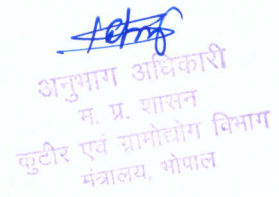 अनुभाग अधिकारी
म. प्र. शासन
कुटीर एवं ग्रामोद्योग विभाग
मंत्रालय, भोपाल